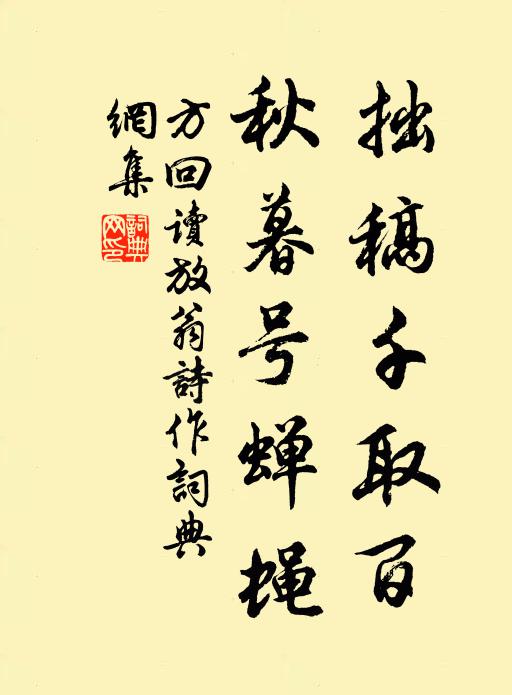 拙稿千取百
秋暮号蝉蝇
方回读放翁詩作詞典
網集
詞典网印